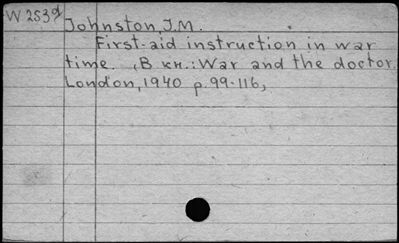 W 253д
Johnston, J.M.
First-aid instruction in war
time. , В кн.: War and the doctor.
London, 1940 p. 99-116,